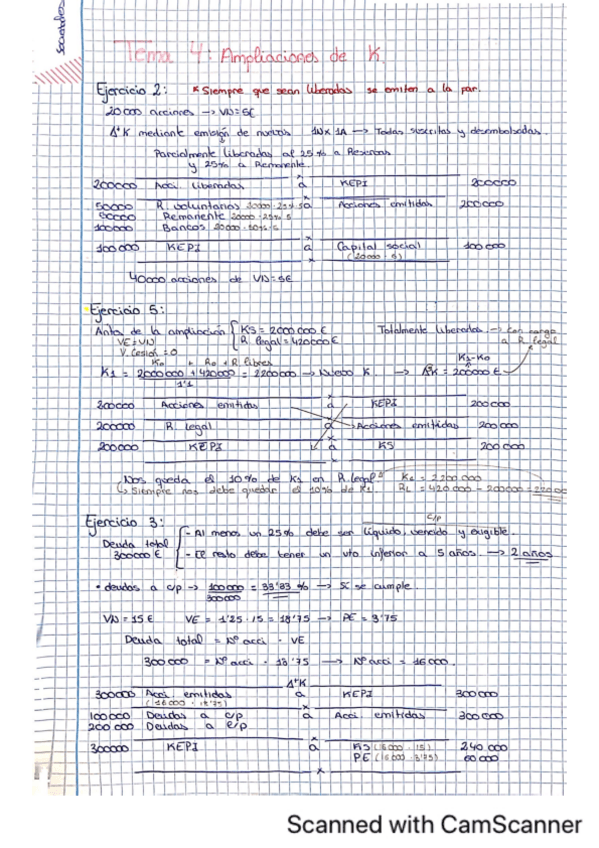 Tema 4: Ampliaciones de K.
Ejercicio 2: * Siempre que sean liberadas se emiten a la par.
20000 acciones → VN=5€
Δ⁺K mediante emisión de nuevas 1N x 1A → Todas suscritas y desembolsadas.
Parcialmente liberadas al 25% a Reservas
y 25% a Remanente.
200000 Acci. liberadas a KEPI 200000
50000 R. voluntarias 20000·25%·5 a Acciones emitidas 200000
50000 Remanente 20000·25%·5
100000 Bancos 20000·50%·5
100000 KEPI a Capital social 100000
(20000·5)
40000 acciones de VN=5€
Ejercicio 5:
Antes de la ampliación { KS = 2000000€ Totalmente liberadas → con cargo
VE=VN R. legal = 420000€ a R legal
V. Cesión = 0
K₀ + R₀ + R libres K₁-K₀
K₁ = 2000000 + 420000 = 2200000 → K → Δ⁺K = 200000€
1'1
200000 Acciones emitidas a KEPI 200000
200000 R legal a Acciones emitidas 200000
200000 KEPI a KS 200000
Nos queda el 10% de K₁ en R. legal? K₁ = 2.200.000
↳ Siempre nos debe quedar el 10% de K₁ RL = 420000 - 200000 = 220000
Ejercicio 3: c/p
Deuda total { - Al menos un 25% debe ser líquido, vencido y exigible.
300000€ - El resto debe tener un vto inferior a 5 años. → 2 años
• deudas a c/p → 100000 = 33'33 % → Sí se cumple.
300000
VN = 15€ VE = 1'25·15 = 18'75 → PE = 3'75
Deuda total = Nº acci · VE
300000 = Nº acci · 18'75 → Nº acci = 16000.
Δ⁺K
300000 Acci. emitidas a KEPI 300000
(16000·18'75)
100000 Deudas a c/p a Acci emitidas 300000
200000 Deudas a e/p
300000 KEPI a KS (16000·15) 240000
PE (16000·3'75) 60000
Scanned with CamScanner